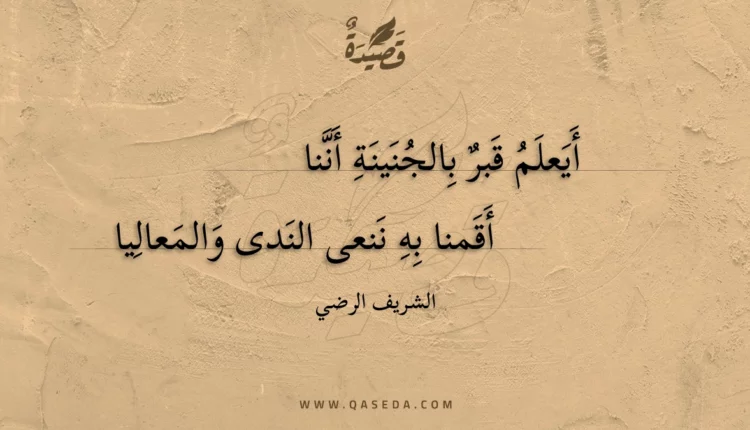 قَصِيدَةٌ
أَيَعلَمُ قَبرٌ بِالجُنَينَةِ أَنَّنا
أَقَمنا بِهِ نَنعى النَدى وَالمَعالِيا
الشريف الرضي
WWW.QASEDA.COM